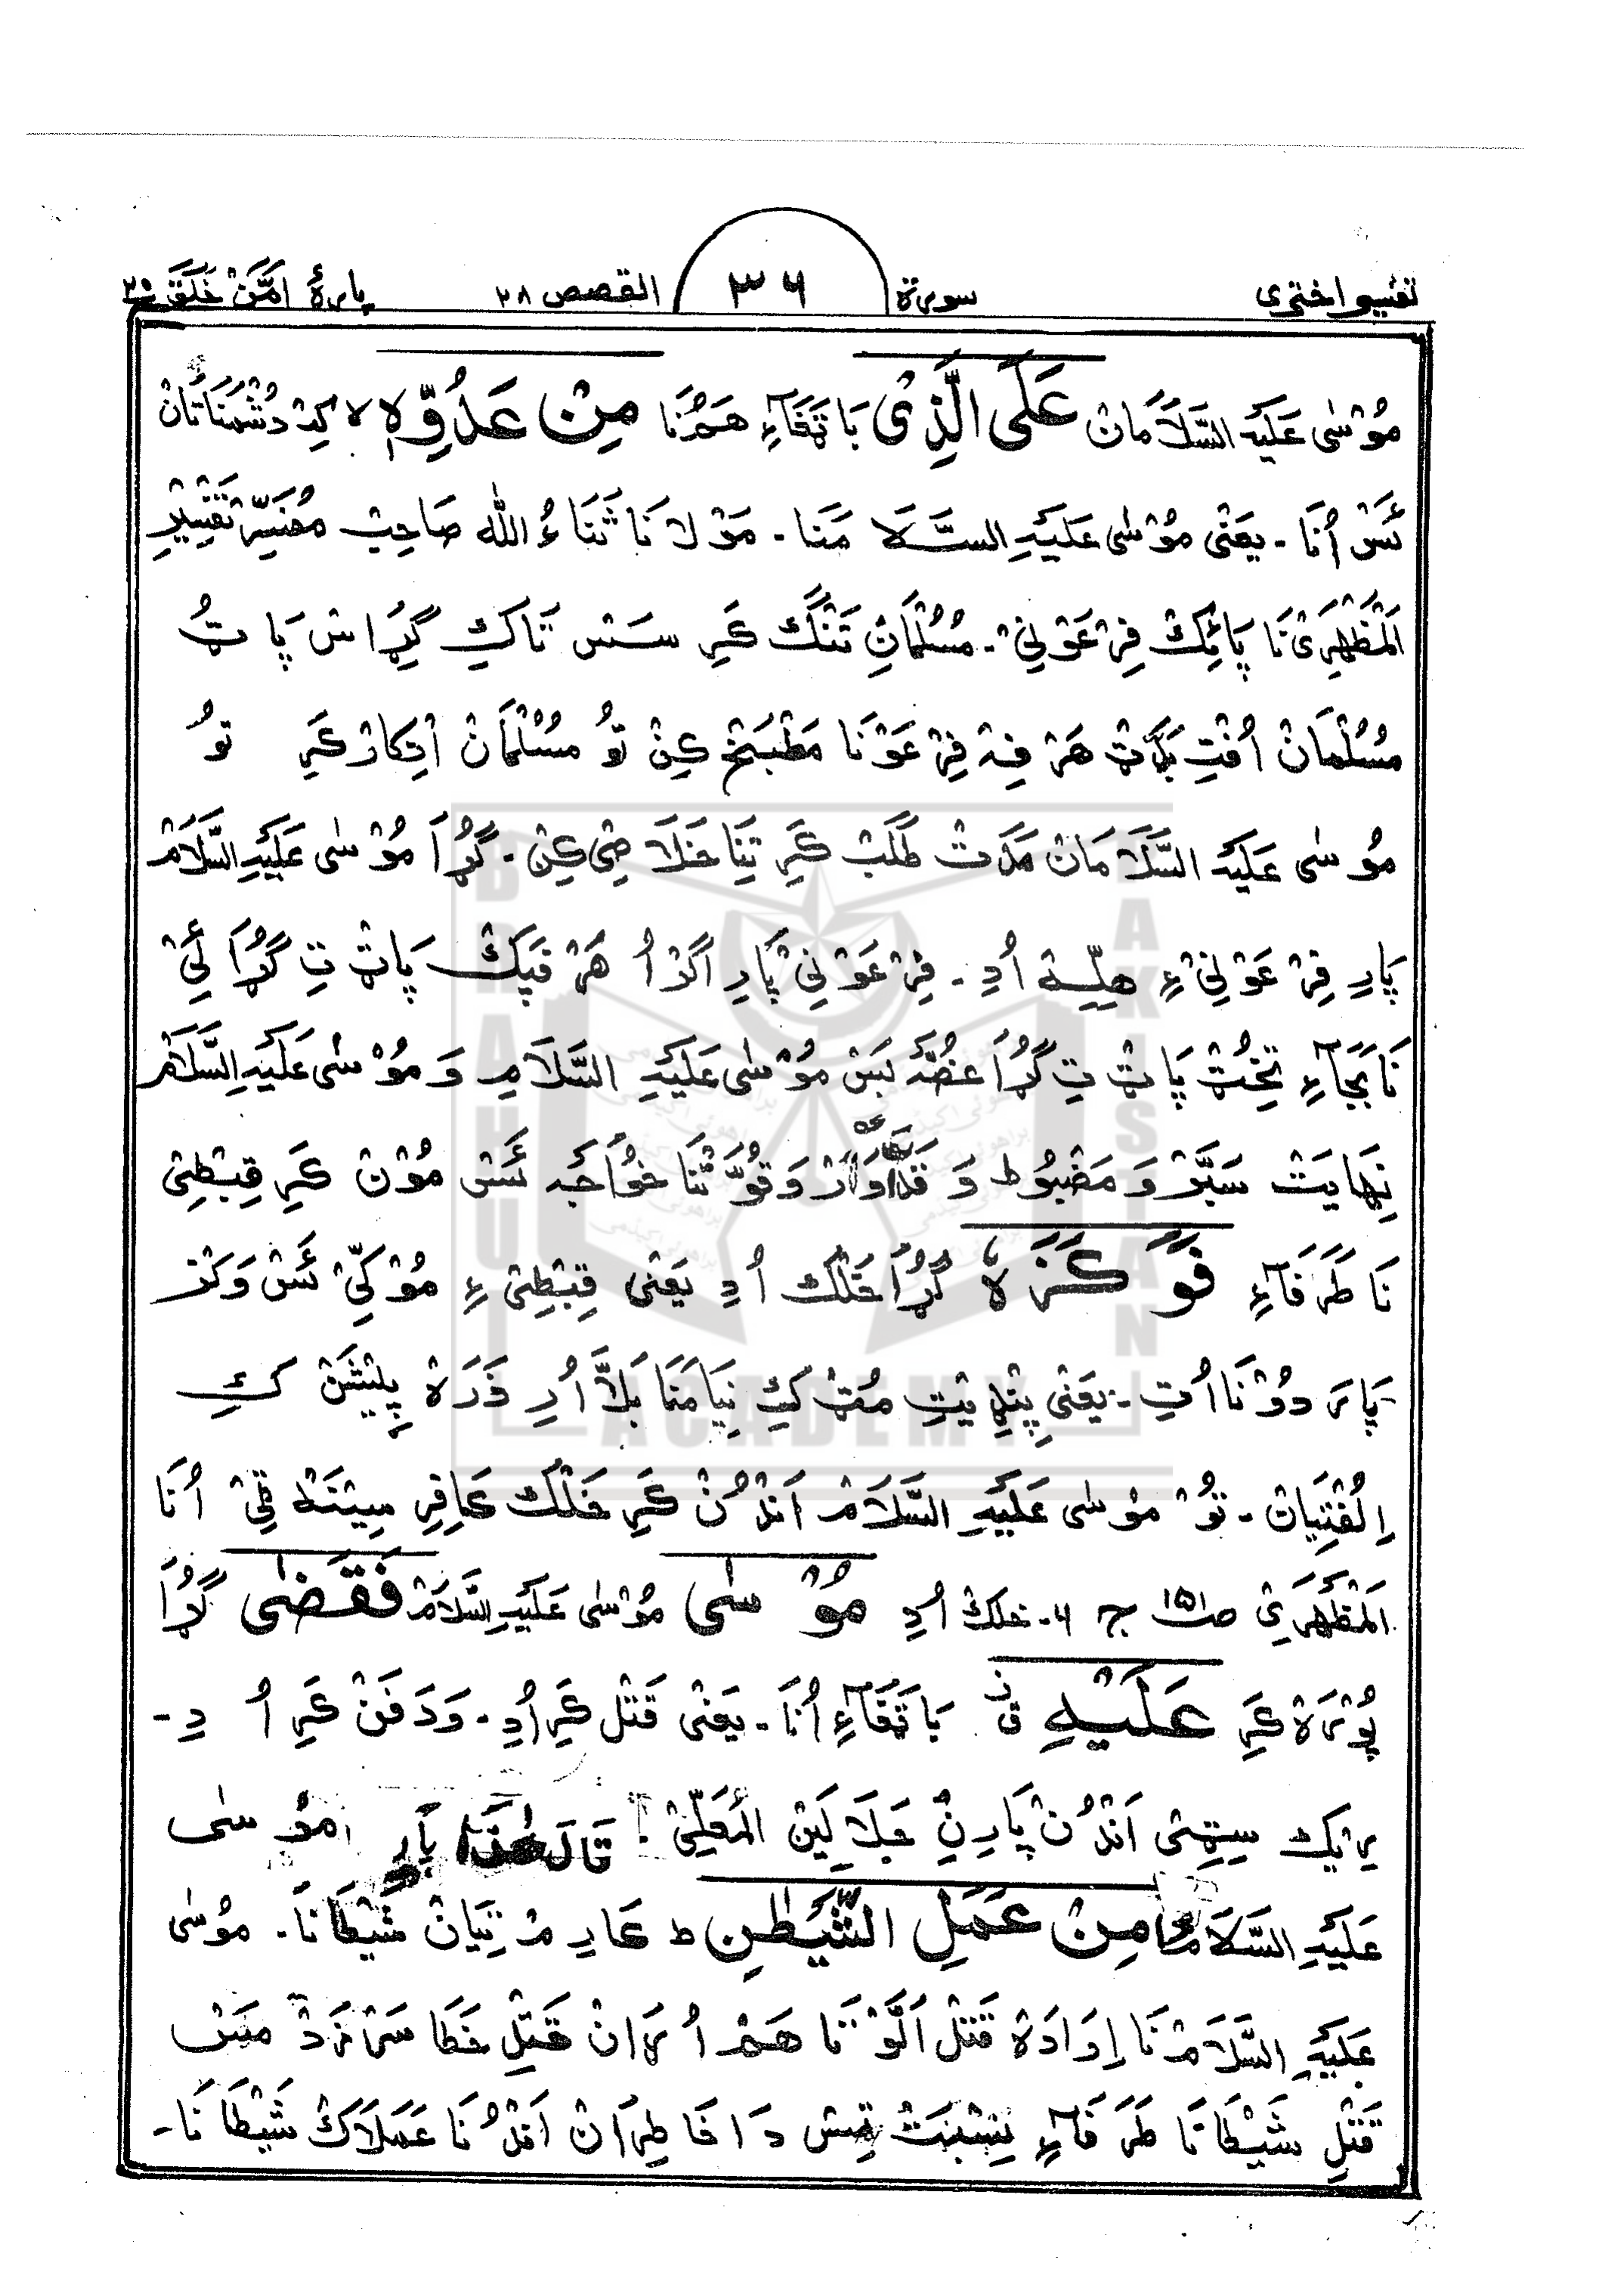 تفسیر اختری سورة ٣٦ القصص ٢٨ پارۀ اَمَّنْ خَلَقَ ٢٠
مُوْسٰی عَلَیْہِ السَّلَامَانْ عَلَی الَّذِیْ بَاتَھَآءِ ھَمُنَا مِنْ عَدُوِّہٖ لا کِہْ دُشْمَنَاتَانْ
ئَسْ اُنَا۔ یَعْنٰی مُوْسٰی عَلَیْہِ السَّلَا مَنَا۔ مَوْلَانَا ثَنَاءُ اللّٰہ صَاحِبْ مُفَسِّرْ تَفْسِیْرِ
اَلْمَظْھَرِیْ نَا پَائِکْ فِرْعَوْنِیْ۔ مُسُلْمَانِ تَنْگْ کَرِ سَسْ تَاکِ گِڑَاسْ پَاتُ
مُسُلْمَانْ اُفْتِ بَدَتْ ھَرْفِہْ فِرْعَوْنَا مَطْبَخْ کِنْ تَوُ مُسُلْمَانْ اِنْکَارْ کَرِ تَوُ
مُوسٰی عَلَیْہِ السَّلَامَانْ مَدَتْ طَلَبْ کَرِ تِنَا خَلَاصِیْ کِنْ۔ گُڑَا مُوْسٰی عَلَیْہِ السَّلَامْ
پَارِ فِرْعَوْنِیْ ءِ ھِلِّہْ اُدِ۔ فِرْعَوْنِیْ پَارِ اَگَرْ اُ ھَرْفَپَکْ پَاتْ تِ گُڑَا نَیْ
نَا بَجَآءِ تَخُتْ پَاتْ تِ گُڑَا غُصَّہ بَسْ مُوْسٰی عَلَیْہِ السَّلَامِ وَ مُوْسٰی عَلَیْہِ السَّلَامْ
نِھَایَتْ سَبَّرْ وَ مَضْبُوط وَ قَدَّاوَارْ وَ قُوَّتْنَا خُوَاجَہ ئَسْ مُوْنْ کَرِ قِبْطِیْ
نَا طَرَفَآءِ فَوَکَزَہٗ گُڑَا خَلْکْ اُدِ یَعْنٰی قِبْطِیْ ءِ مُوْکِیْ ئَسْ وَکَزْ
پَارَ دُوْنَا اُتِ۔ یَعْنٰی پِنْلِ یْتِ مُتْ کِ نِیَامَنَا بَلَّا اُرِ ذَرَہْ پِیْشَنْ کِ
اِلُفْتِیَانْ۔ تَوُ مُوْسٰی عَلَیْہِ السَّلَامْ اَنْدُنْ کَرِ خَلْکْ کَافِرِ سِیْنَہْ ٹِیْ اُنَا
اَلْمَظْھَرِیْ ص١٥١ ج ٧۔ خَلْکْ اُدِ مُوْسٰی مُوْسٰی عَلَیْہِ السَّلَامْ فَقَضٰی گُڑَا
پُوْرَہْ کَرِ عَلَیْہِ ق ز بَاتَھَآءِ اُنَا۔ یَعْنٰی قَتْل کَرِ اُدِ۔ وَدَفَنْ کَرِ اُ دِ۔
رِیْکْ سِتِیْ اَنْدُنْ پَارِنْ جَلَالَیْن اَلْمُعَلِّیْ۔ قَالَ ھٰذَا پَارِ مُوْسٰی
عَلَیْہِ السَّلَامْ مِنْ عَمَلِ الشَّیْطٰنِ ط کَارِ مْ تِیَانْ شَیْطَانَا۔ مُوْسٰی
عَلَیْہِ السَّلَامْ نَا اِرَادَہْ قَتْل اَلَّوْ نَا ھَمْ اُرَانْ قَتْلِ خَطَا سَرْزَدْ مَسْ
قَتْلِ شَیْطَانَا طَرَفَآءِ نِسْبَتْ تِسْ دَاخَاطِرَانْ اَنْدُنَا عَمَلَاکْ شَیْطَانَا۔
BRAHUI ACADEMY PAKISTAN